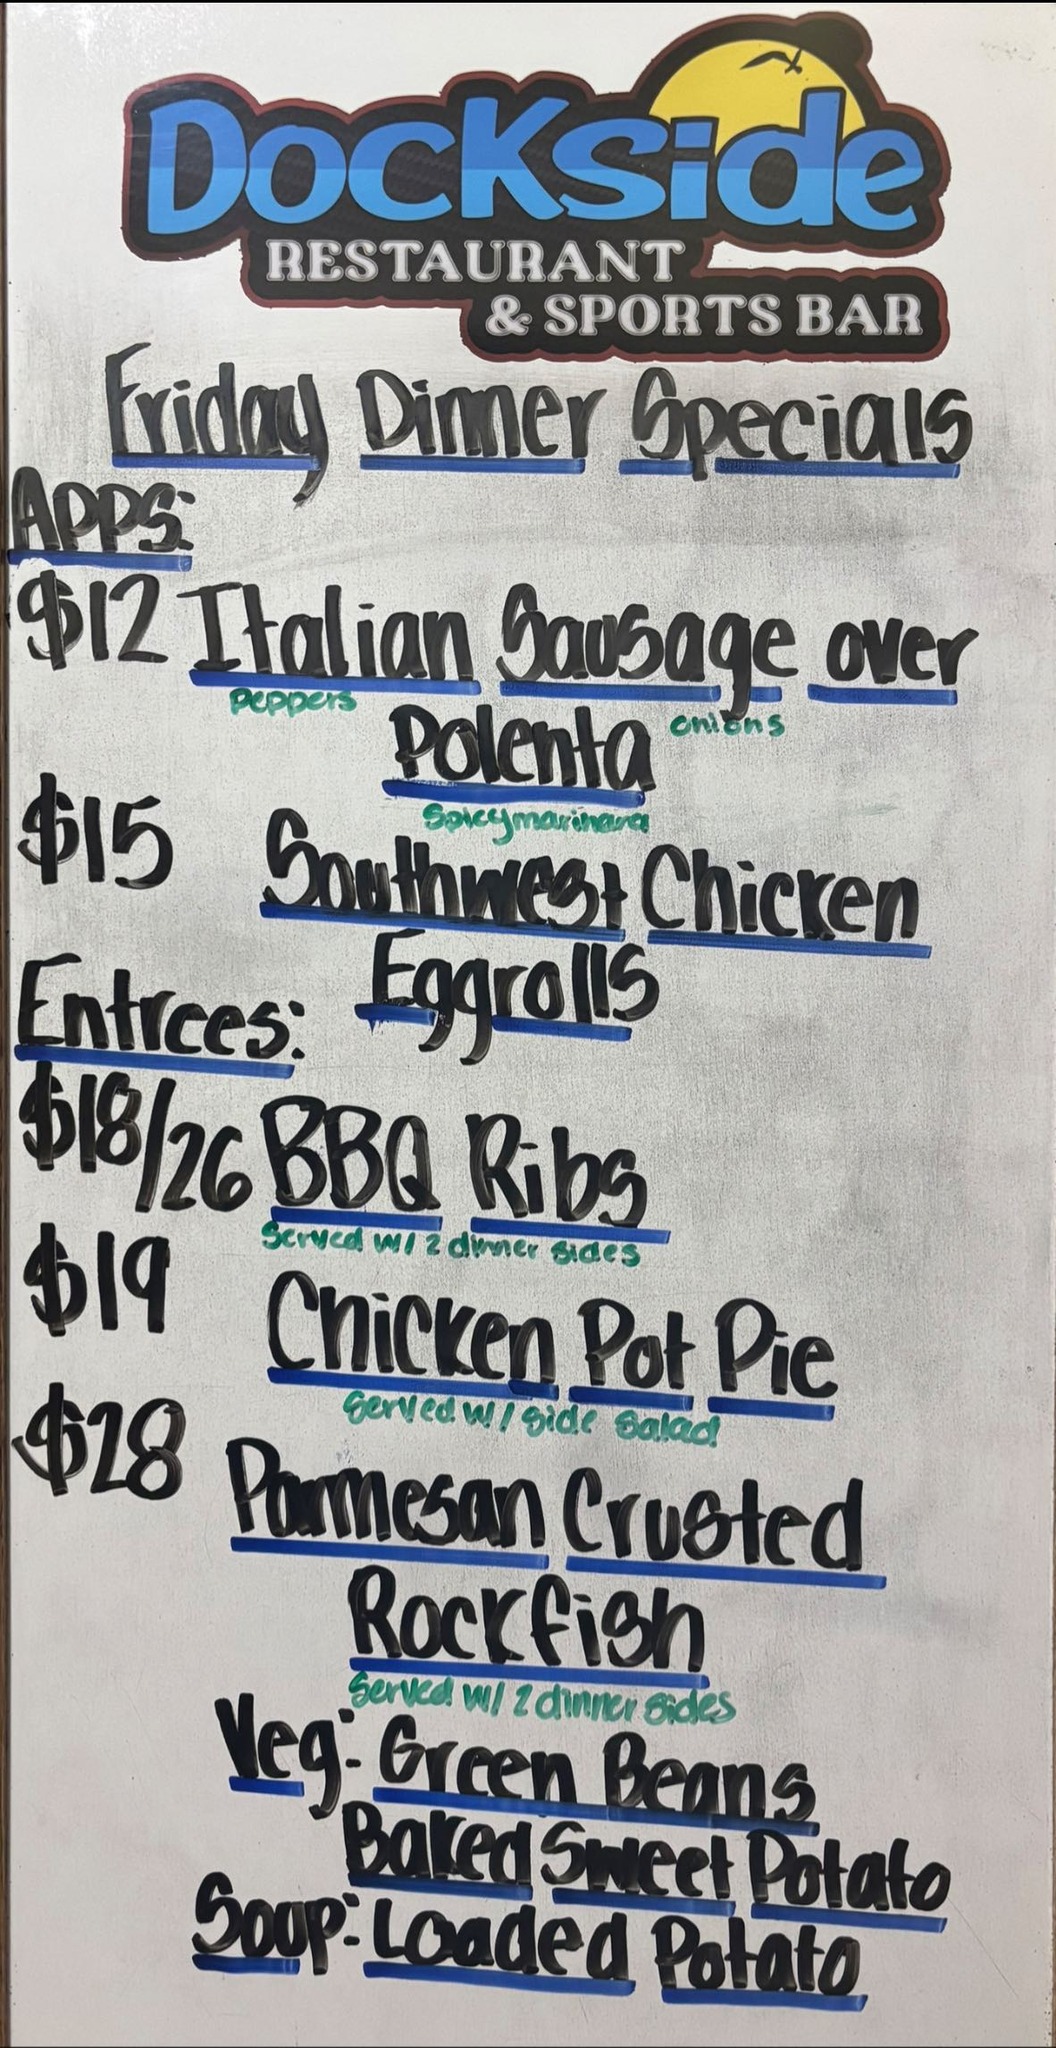 Dockside
RESTAURANT
& SPORTS BAR
Friday Dinner Specials
Apps:
$12 Italian Sausage over
Peppers
Polenta onions
Spicy marinara
$15 Southwest Chicken
Eggrolls
Entrees:
$18/26 BBQ Ribs
Served w/ 2 dinner sides
$19 Chicken Pot Pie
Served w/ side salad
$28 Parmesan Crusted
Rockfish
Served w/ 2 dinner sides
Veg: Green Beans
Baked Sweet Potato
Soup: Loaded Potato